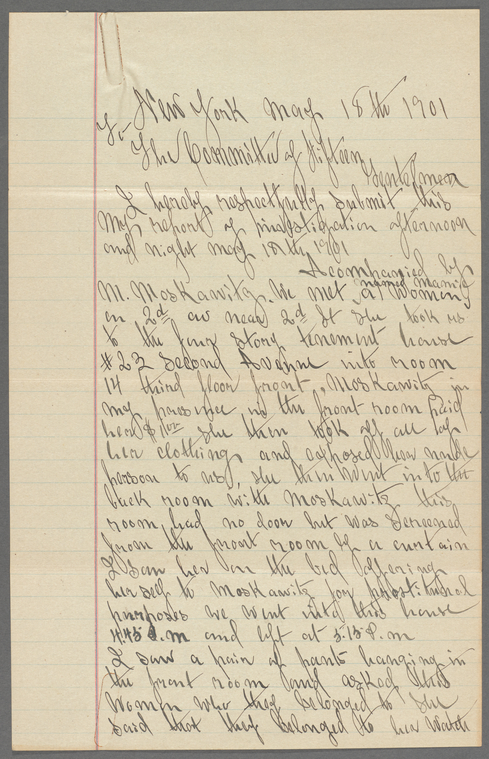 New York May 18th 1901
To
The Committee of Fifteen
Gentelmen
I hereby respectfully submit this
my report of investigation afternoon
and night May 18th, 1901
Acompanied by
M. Moskawitz. We met a women named Mamie
on 2d av near 2d St she took us
to the four story tenement house
#23 Second Avenue into room
14 third floor front, Moskawitz in
my presence in the front room paid
her $1.00 she then took off all of
her clothing and exposed her nude
person to us, she then went in to the
back room with Moskawitz this
room had no door but was screened
from the front room by a curtain
I saw her on the bed offering
herself to Moskawitz for prostitutional
purposes we went into this house
4.45 P.m and left at 5.15 P.m
I saw a pair of pants hanging in
the front room and asked this
women who they belonged to she
said that they belonged to her